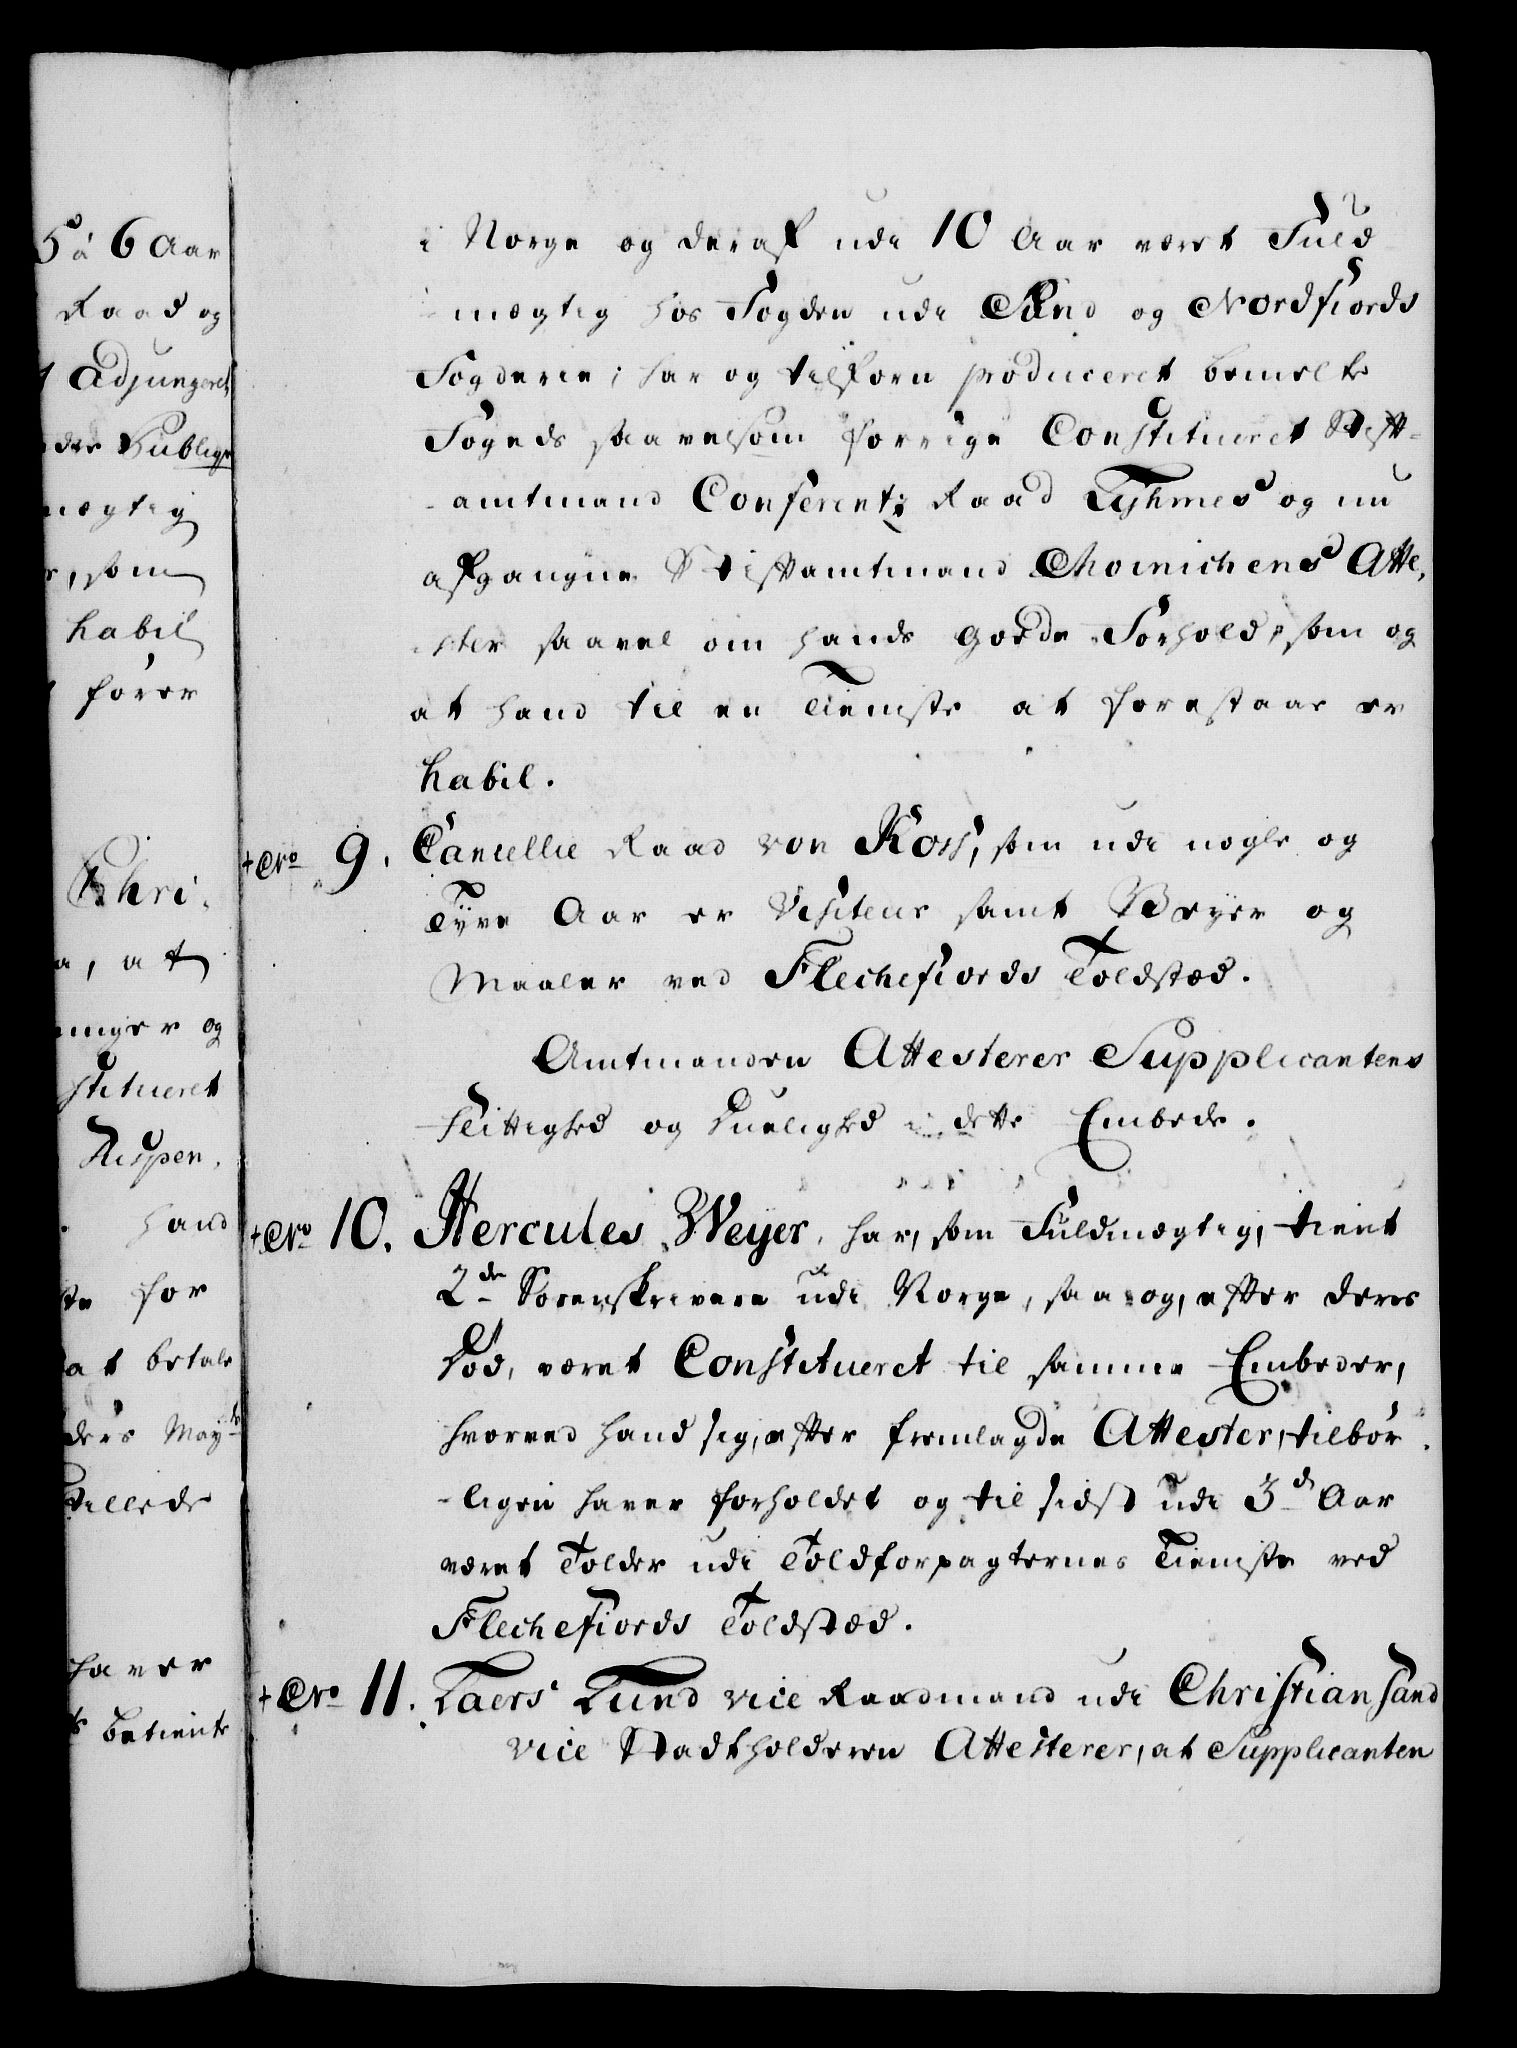 5 à 6 Aar
Raad og
Adjungeret
Publiqve
mægtig
, som
habil
fører
Chri-
, at
inger og
stitueret
Rispen-
hand
for
at betale
ders May
tillede
haver
betiente
i Norge og deraf udi 10 Aar været Fuld
mægtig hos Fogden udi Sund og Nordfiords
Fogderie; har og tilforn produceret bemelte
Fogeds saavelsom forrige Constitueret Stift-
amtmand Conferentz Raad Tyhmes og nu
afgangne Stiftamtmand Choinichens Atte,
ster saavel om hands goede Forhold, som og
at hand til en Tieniste at forestaae er
habil.
+ No 9. Cancellie Raad von Koss, som udi nogle og
Tyve Aar er Visiteur samt Veyer og
Maaler ved Flechefiords Toldsted.
Amtmanden Attesterer Supplicantens
Flittighed og Duelighed i dette Embede.
+ No 10. Hercules Weyer, har, som Fuldmægtig, tient
2de Sorenskrivere udi Norge, saa og, efter deres
Død, været Constitueret til samme Embeder,
hvorved hand sig, efter fremlagde Attester, tilbør
-ligen haver forholdet og til sidst udi 3de Aar
været Tolder udi Toldforpagternes Tieniste ved
Flechefiords Toldsted.
+ No 11. Laers Lund vice Raadmand udi Christiansand
vice Stadtholderen Attesterer, at Supplicanten